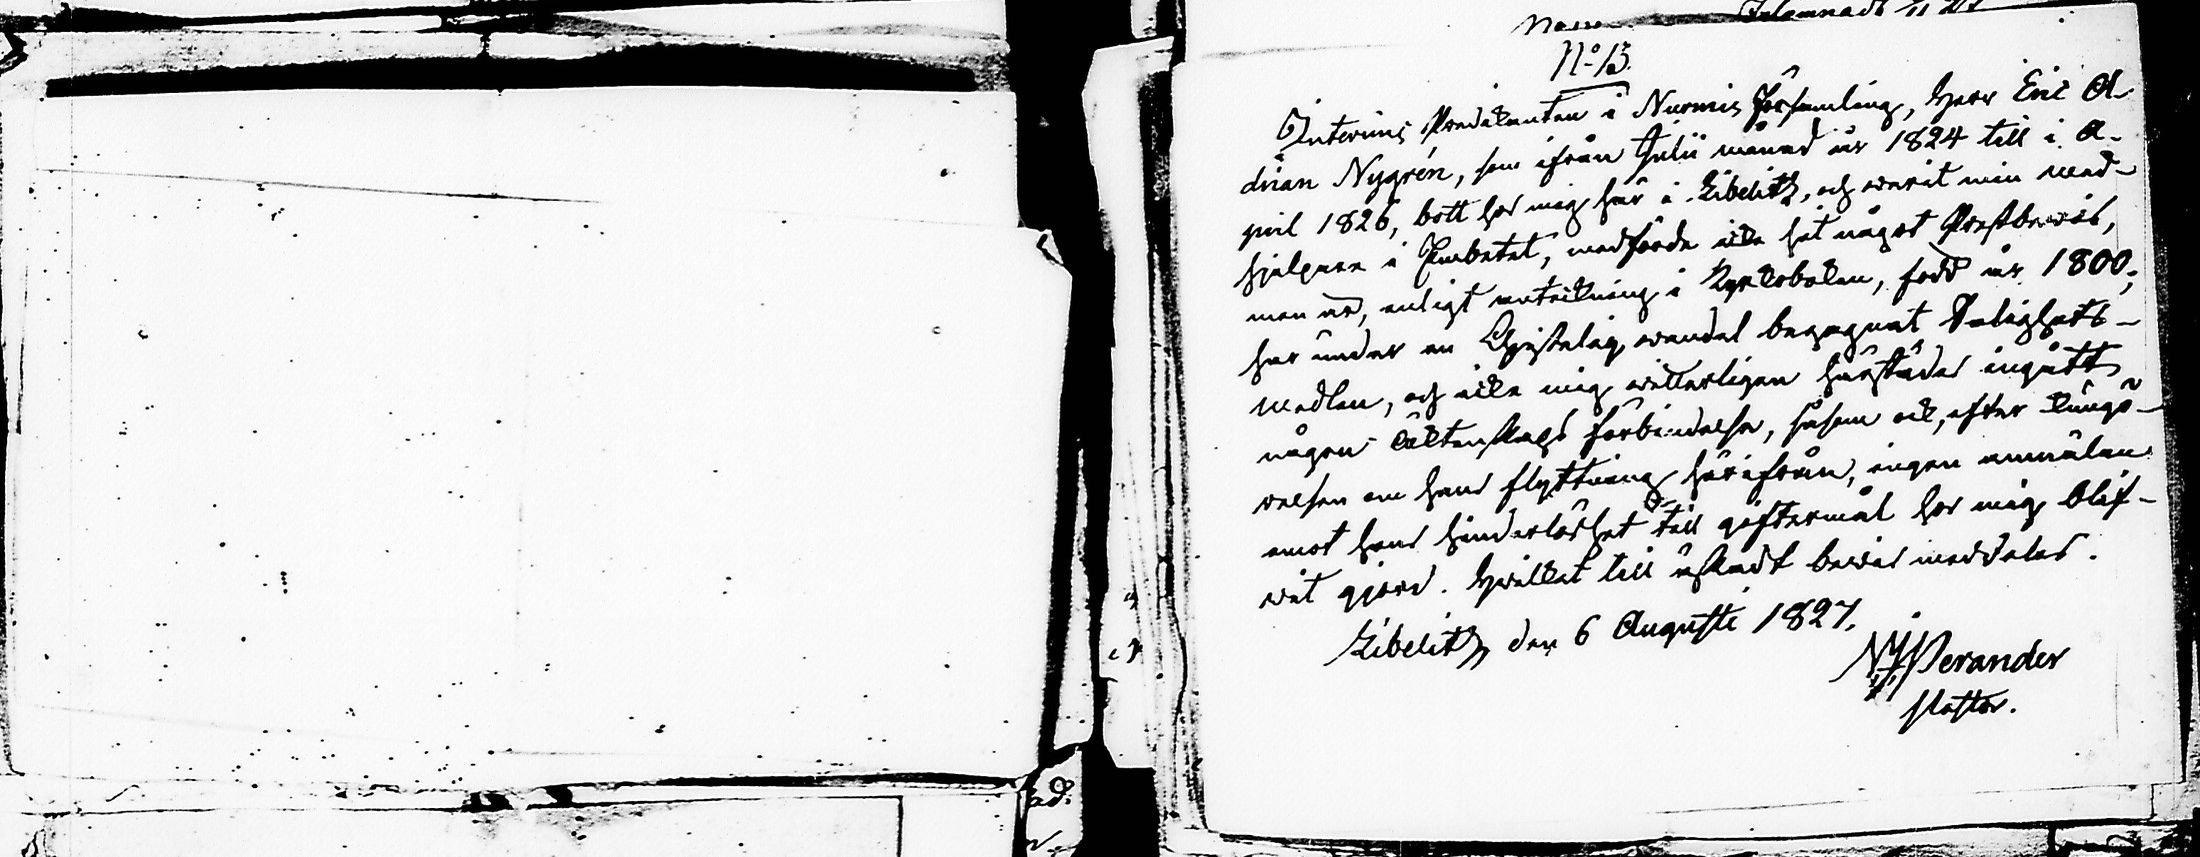 Inlemnadt 11
No 13.
Interims Predikanten i Nurmis Församling, Herr Eric A-
drian Nygrén, som ifrån Julii månad år 1824 till i A-
pril 1826, bott hos mig här i Libelitz, och warit min med-
hjelpare i Embetet, medförde icke hit något Prestbewis,
men är, enligt anteckning i Kyrkoboken, född år 1800;
har under en Christelig wandel begagnat Salighets-
medlen, och icke mig witterligen härstädes ingått
någon äktenskaps förbindelse, såsom ock, efter kungö-
relsen om hans flyttning härifrån, ingen anmälan
emot hans hinderlöshet till giftermål hos mig blif-
wit gjord. Hwilket till äskadt bewis meddelas.
Libelitz den 6 Augusti 1827.
Perander
Pastor.